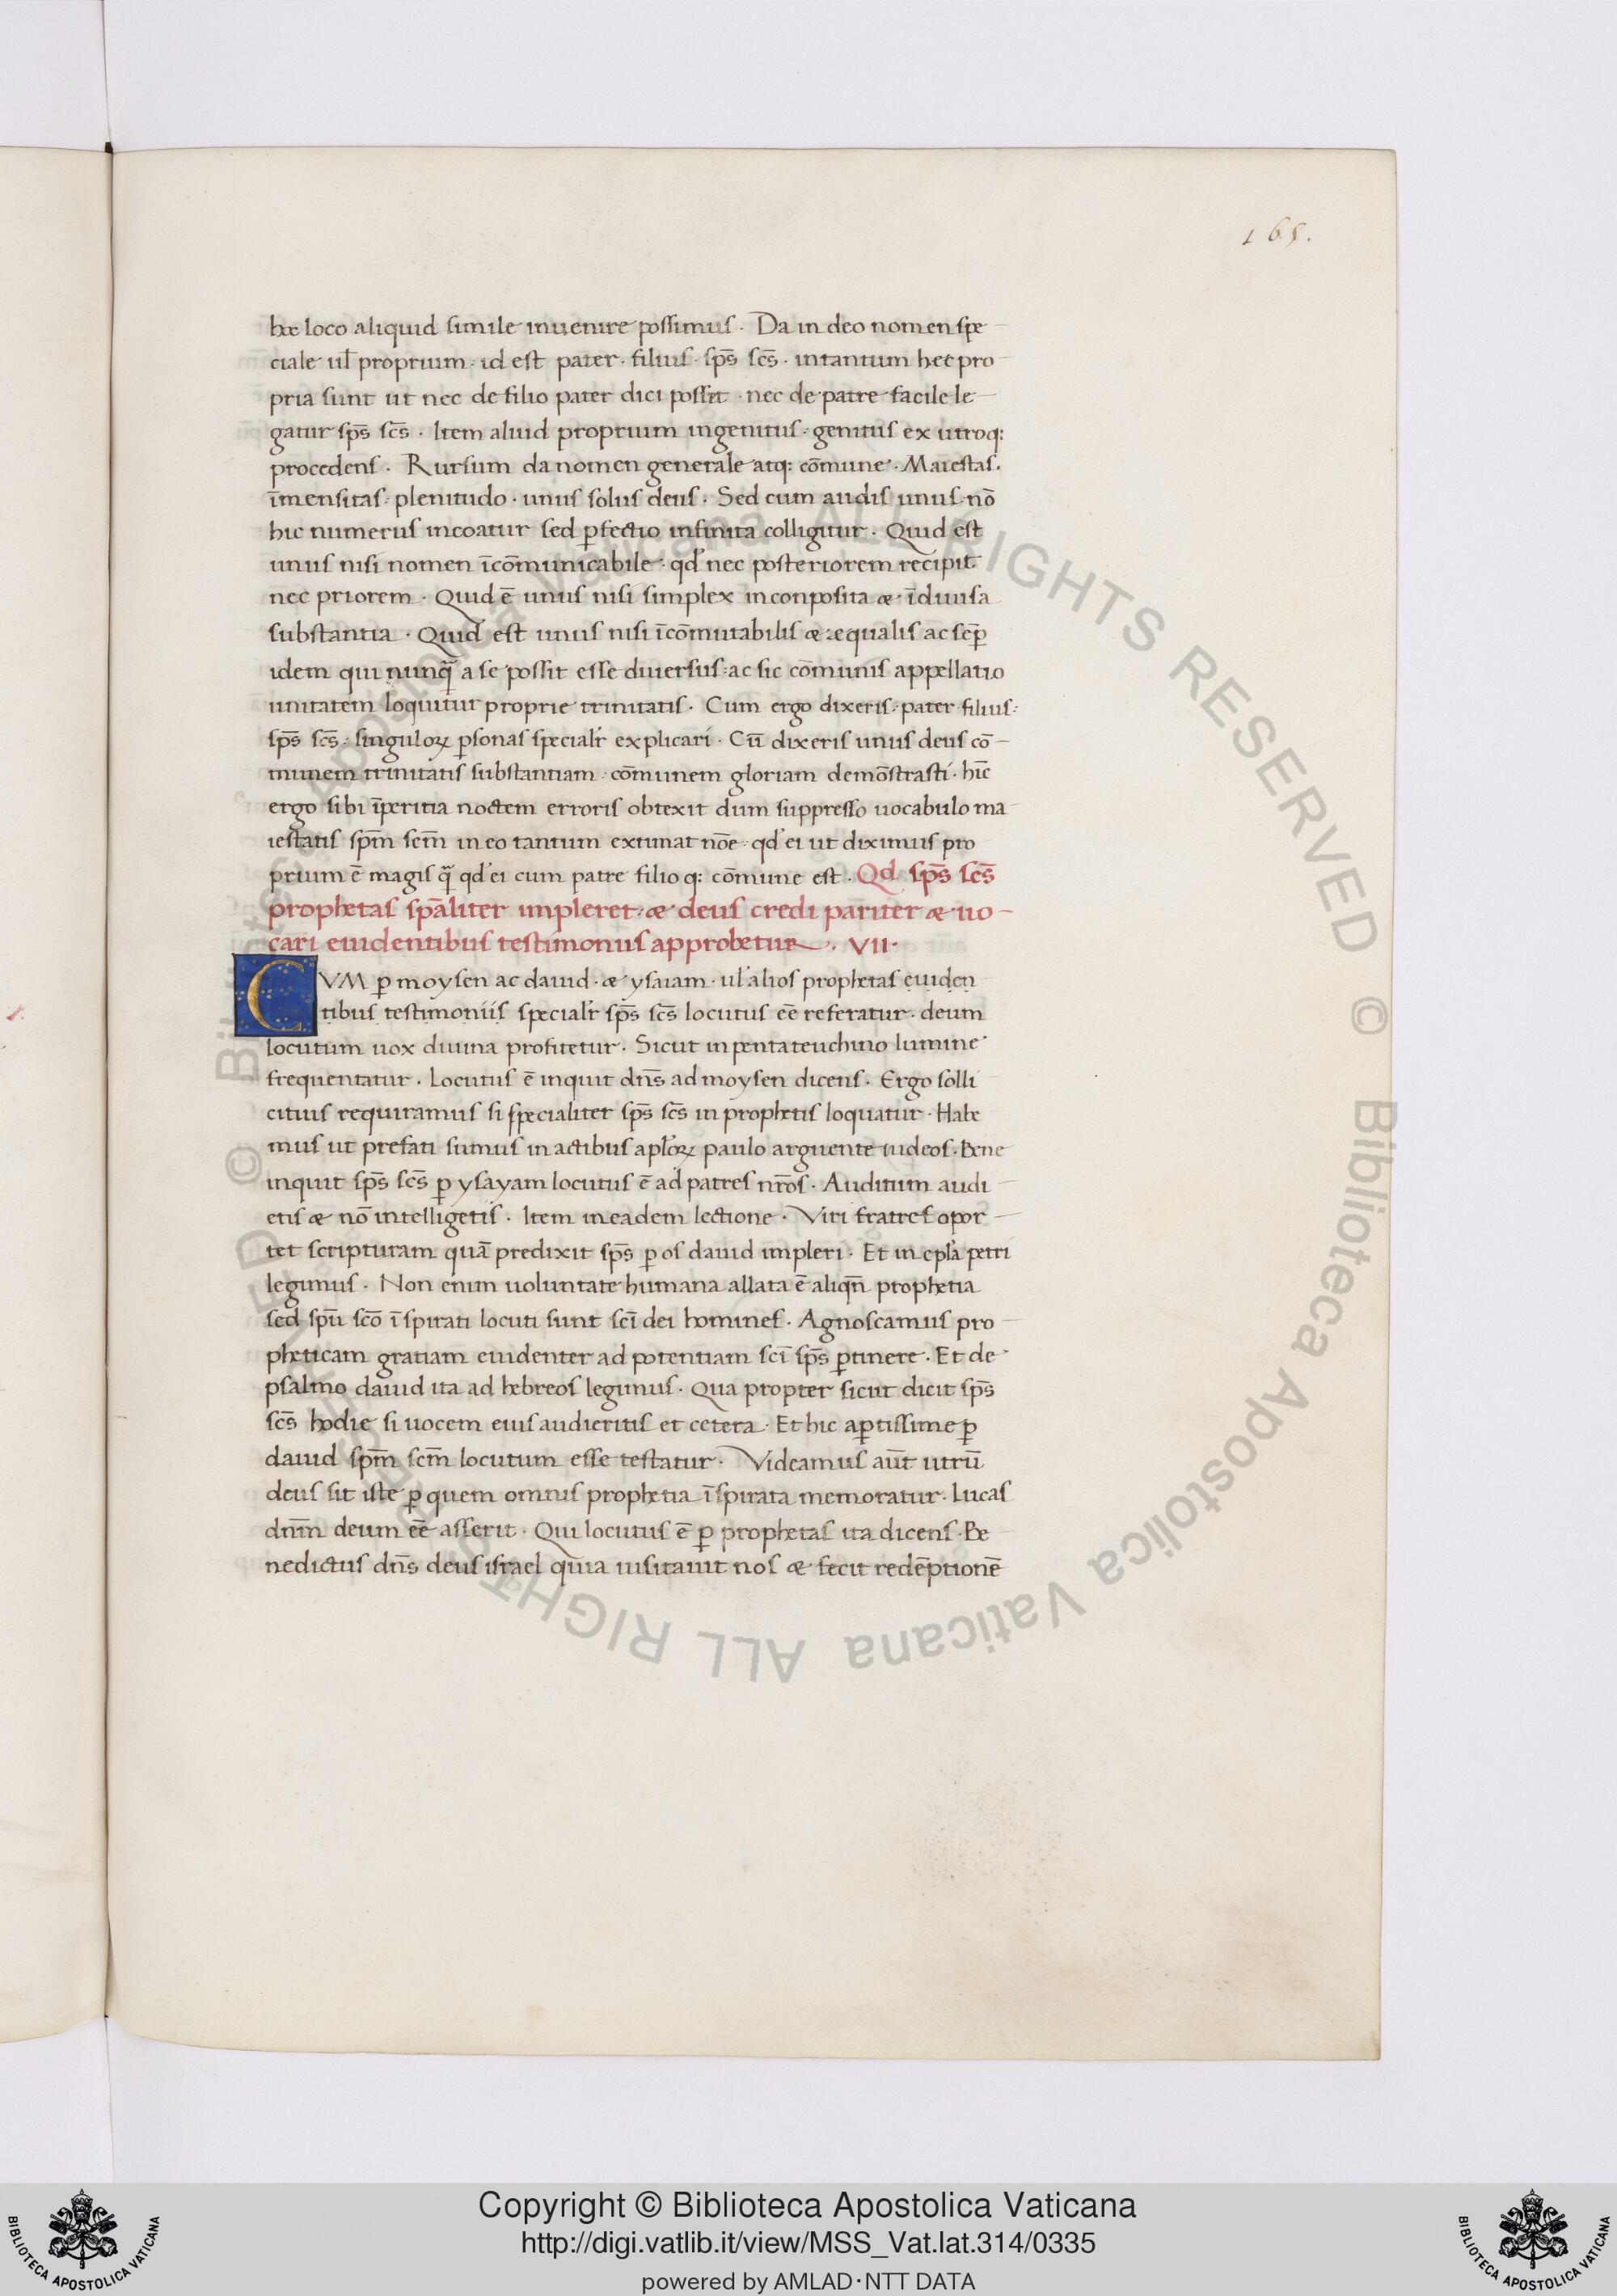 165.
hoc loco aliquid simile inuenire possimus. Da in deo nomen spe
ciale ul̄ proprium. id est pater. filius. sp̄s sc̄s. intantum hec pro
pria sunt ut nec de filio pater dici possit. nec de patre facile le
gatur sp̄s sc̄s. Item aliud proprium ingenitus. genitus ex utroq:
procedens. Rursum da nomen generale atq: cōmune. Maiestas.
īmensitas. plenitudo. unus solus deus. Sed cum audis unus. nō
hic numerus incoatur sed ꝑfectio infinita colligitur. Quid est
unus nisi nomen īcōmunicabile. qd' nec posteriorem recipit
nec priorem. Quid ē unus nisi simplex inconposita æ īdiuisa
substantia. Quid est unus nisi īcōmutabilis æ æqualis ac sēꝑ
idem qui nunq̄ a se possit esse diuersus: ac sic cōmunis appellatio
unitatem loquitur proprie trinitatis. Cum ergo dixeris: pater filius:
sp̄s sc̄s: singuloꝝ ꝑsonas specialr̄ explicari. Cū dixeris unus deus cō
munem trinitatis substantiam: cōmunem gloriam demōstrasti. hīc
ergo sibi īperitia noctem erroris obtexit dum suppresso uocabulo ma
iestatis sp̄m sc̄m in eo tantum extimat nōe. qd' ei ut diximus pro
prium ē magis q̄ qd' ei cum patre filio q: cōmune est. Qd. sp̄s sc̄s
prophetas sp̄aliter impleret: æ deus credi pariter æ uo
cari euidentibus testimoniis approbetur. VII.
CVM ꝑ moysen ac dauid. æ ysaiam. ul̄ alios prophetas euiden
tibus testimoniis specialr̄ sp̄s sc̄s locutus eē referatur. deum
locutum uox diuina profitetur. Sicut in pentateuchino lumine
frequentatur. Locutus ē inquit dn̄s ad moysen dicens. Ergo solli
citius requiramus si specialiter sp̄s sc̄s in prophetis loquatur. Habe
mus ut prefati sumus in actibus apl̄oꝝ paulo arguente iudeos. Bene
inquit sp̄s sc̄s ꝑ ysayam locutus ē ad patres nr̄os. Auditum audi
etis æ nō intelligetis. Item in eadem lectione. Viri fratres opor
tet scripturam quā predixit sp̄s ꝑ os dauid impleri. Et in epl̄a petri
legimus. Non enim uoluntate humana allata ē aliqn̄ prophetia
sed sp̄u sc̄o īspirati locuti sunt sc̄i dei homines. Agnoscamus pro
pheticam gratiam euidenter ad potentiam sc̄i sp̄s ꝑtinere. Et de
psalmo dauid ita ad hebreos legimus. Qua propter sicut dicit sp̄s
sc̄s hodie si uocem eius audieritis et cetera. Et hic aꝑtissime ꝑ
dauid sp̄m sc̄m locutum esse testatur. Videamus aūt utrū
deus sit iste ꝑ quem omnis prophetia īspirata memoratur. Lucas
dn̄m deum eē asserit. Qui locutus ē ꝑ prophetas ita dicens. Be
nedictus dn̄s deus israel quia uisitauit nos æ fecit redēptionē
© Biblioteca Apostolica Vaticana ALL RIGHTS RESERVED © Biblioteca Apostolica Vaticana ALL RIGHTS RESERVED
Copyright © Biblioteca Apostolica Vaticana
http://digi.vatlib.it/view/MSS_Vat.lat.314/0335
powered by AMLAD·NTT DATA
BIBLIOTECA APOSTOLICA VATICANA
BIBLIOTECA APOSTOLICA VATICANA